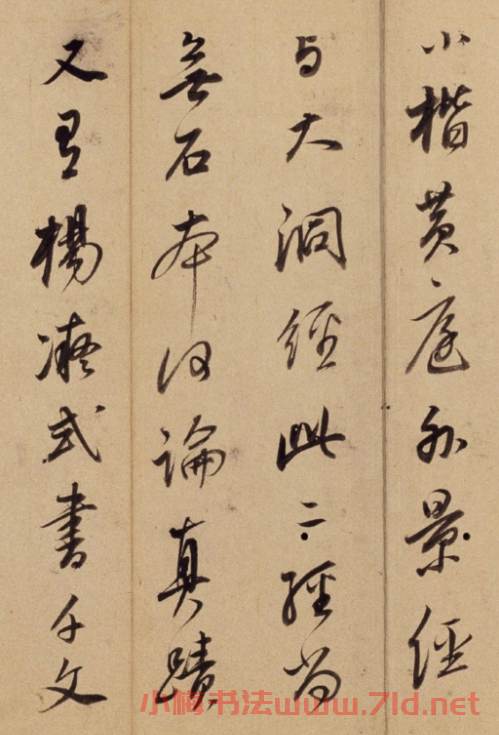 小楷黄庭外景經
与大洞經此二經尚
無石本何論真蹟
又有楊凝式書千文
小楷书法www.7ld.net